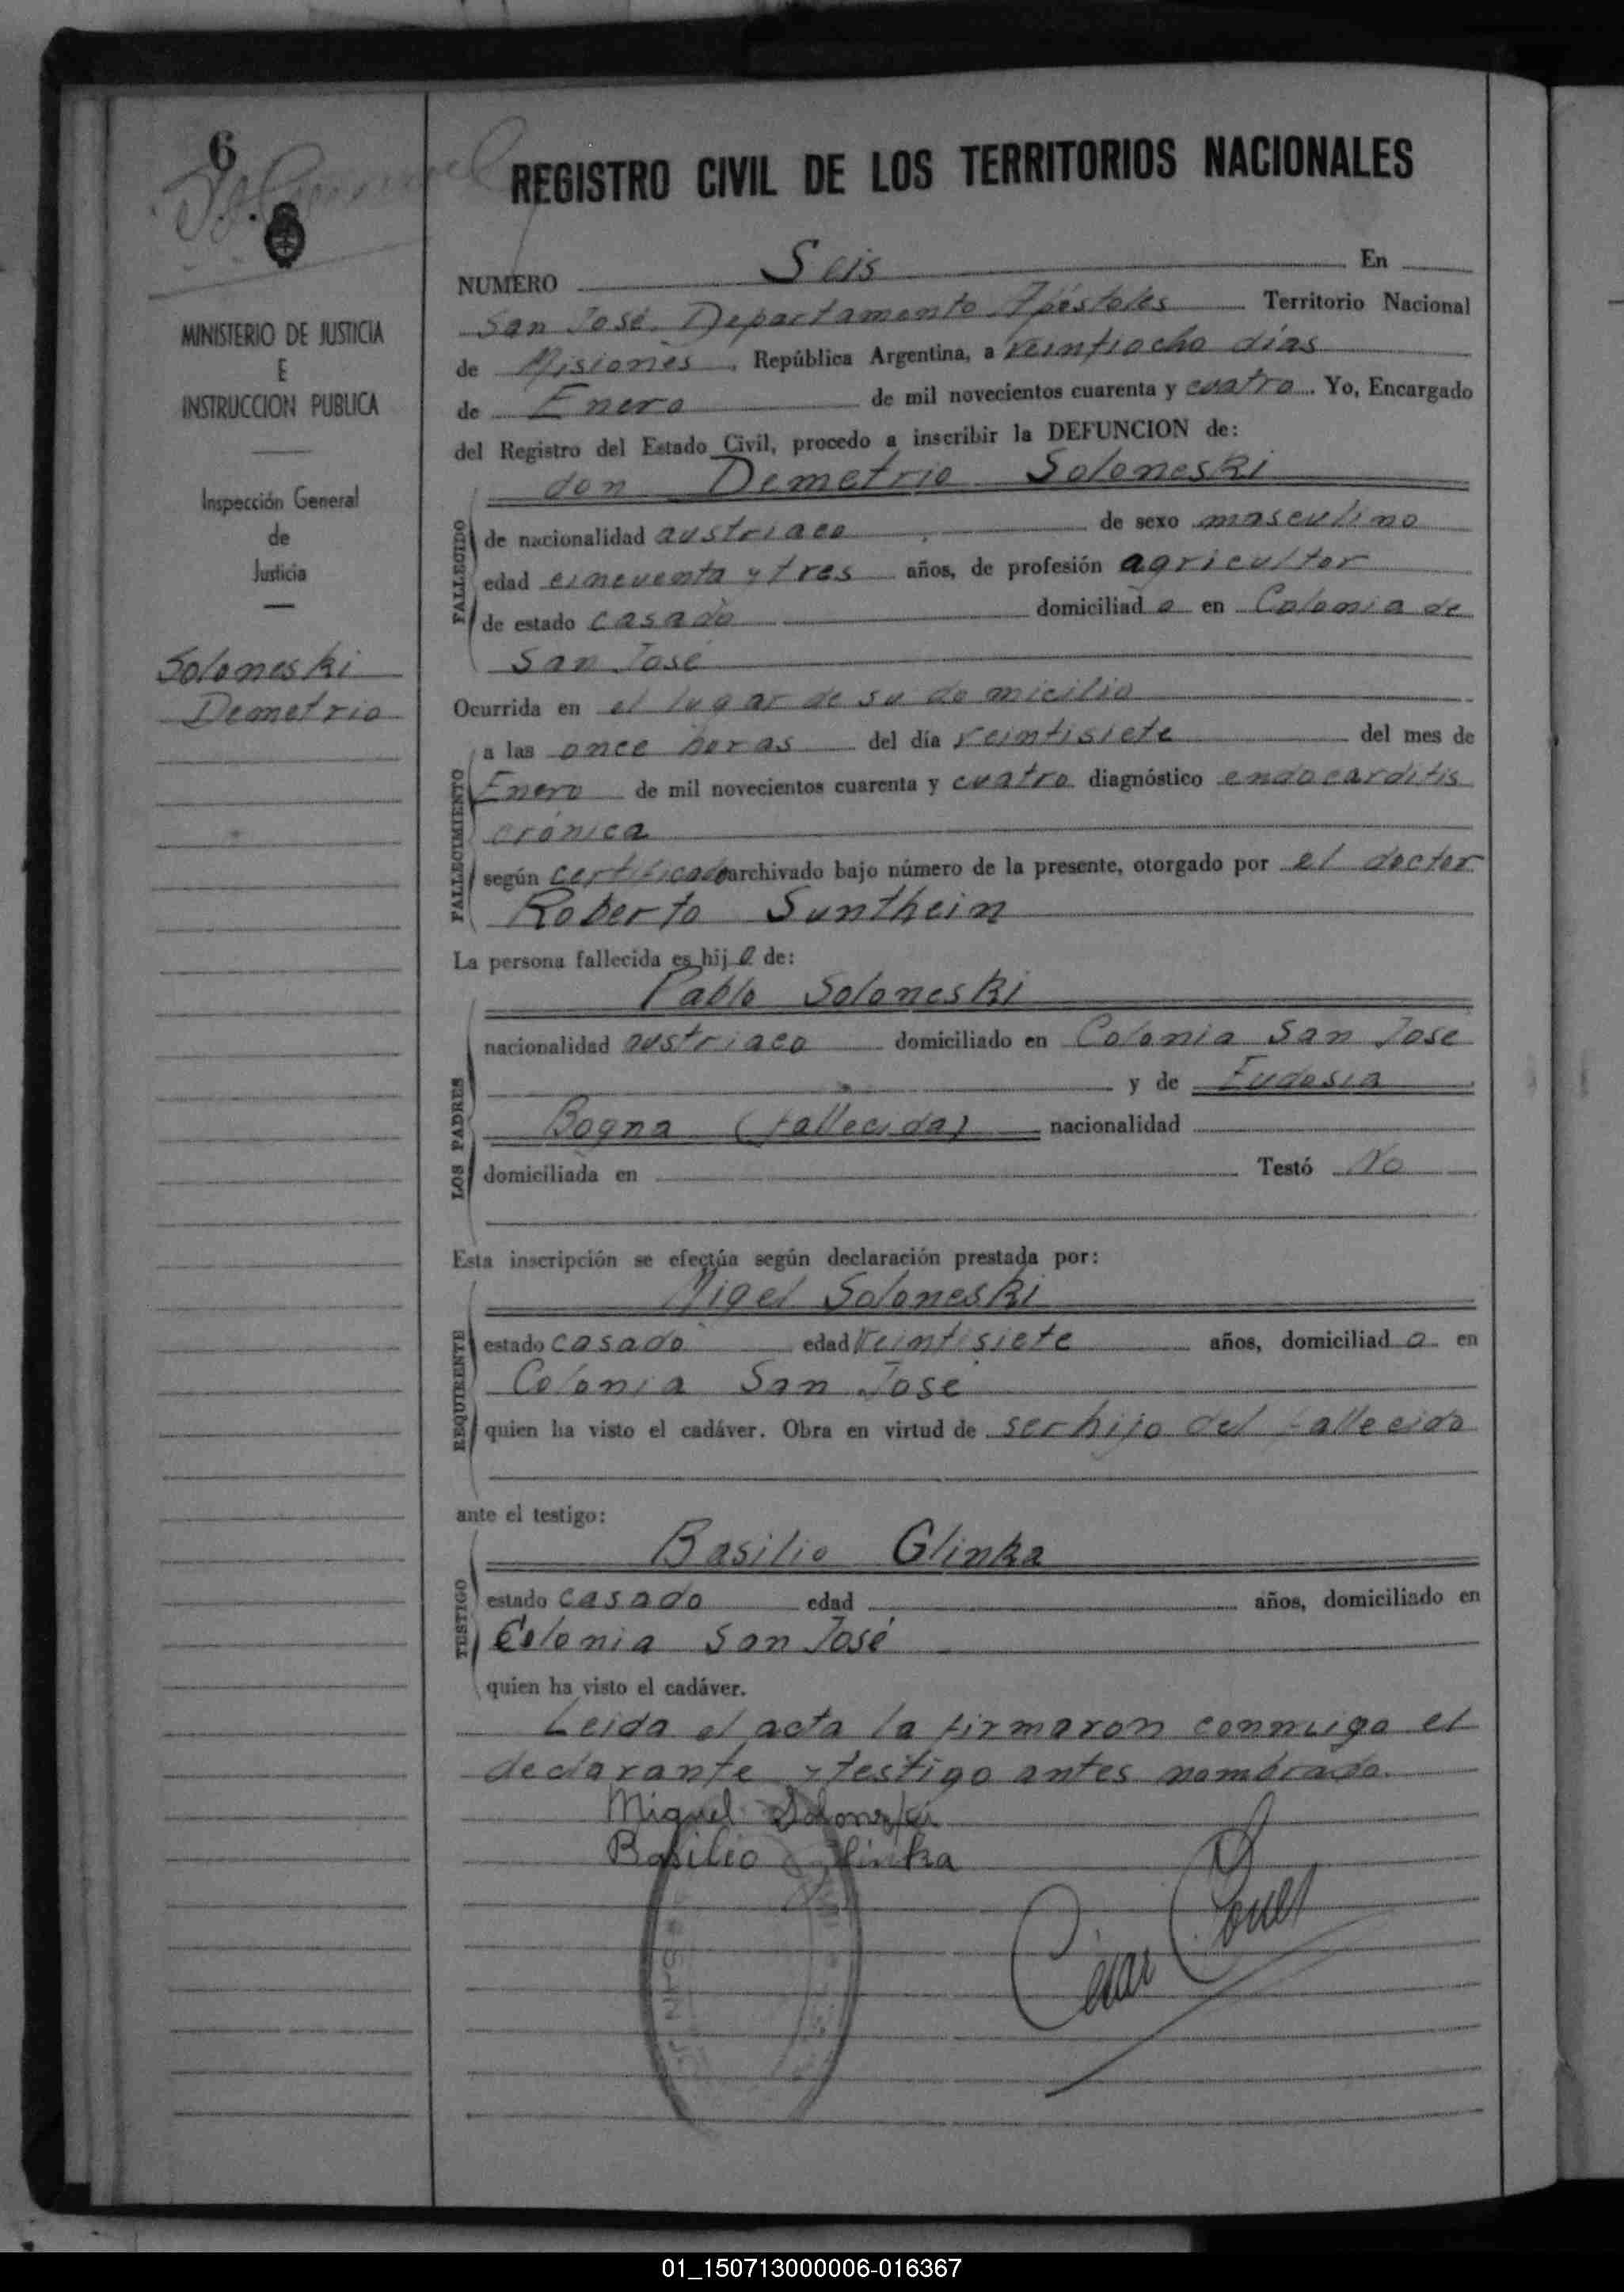 6
MINISTERIO DE JUSTICIA
E
INSTRUCCION PUBLICA
Inspección General
de
Justicia
Soloneski
Demetrio
REGISTRO CIVIL DE LOS TERRITORIOS NACIONALES
NUMERO Seis En
San José. Departamento Apóstoles Territorio Nacional
de Misiones, República Argentina, a veintiocho días
de Enero de mil novecientos cuarenta y cuatro. Yo, Encargado
del Registro del Estado Civil, procedo a inscribir la DEFUNCION de:
don Demetrio Soloneski
FALLECIDO
de nacionalidad austriaco de sexo masculino
edad cincuenta y tres años, de profesión agricultor
de estado casado domiciliado en Colonia de
San José
Ocurrida en el lugar de su domicilio
FALLECIMIENTO
a las once horas del día veintisiete del mes de
Enero de mil novecientos cuarenta y cuatro diagnóstico endocarditis
crónica
según certificado archivado bajo número de la presente, otorgado por el doctor
Roberto Sunthein
La persona fallecida es hijo de:
Pablo Soloneski
LOS PADRES
nacionalidad austriaco domiciliado en Colonia San Jose
y de Eudosia
Bogna (fallecida) nacionalidad
domiciliada en Testó No
Esta inscripción se efectúa según declaración prestada por:
Migel Soloneski
REQUIRENTE
estado casado edad veintisiete años, domiciliado en
Colonia San José
quien ha visto el cadáver. Obra en virtud de ser hijo del fallecido
ante el testigo:
Basilio Glinka
TESTIGO
estado casado edad años, domiciliado en
Colonia San José
quien ha visto el cadáver.
Leida el acta la firmaron conmigo el
declarante y testigo antes nombrado.
Miguel Soloneski
Basilio Glinka
Cesar
01_150713000006-016367